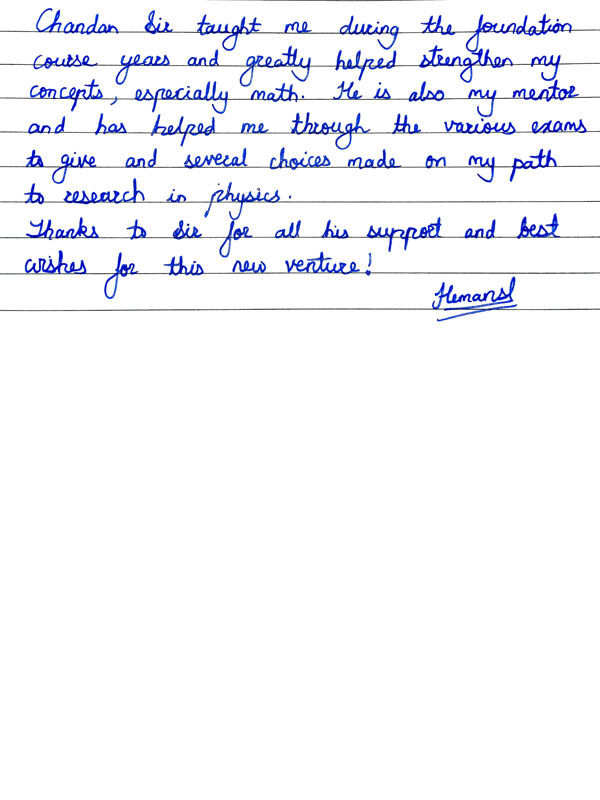 Chandan Sir taught me during the foundation
course years and greatly helped strengthen my
concepts, especially math. He is also my mentor
and has helped me through the various exams
to give and several choices made on my path
to research in physics.
Thanks to Sir for all his support and best
wishes for this new venture!